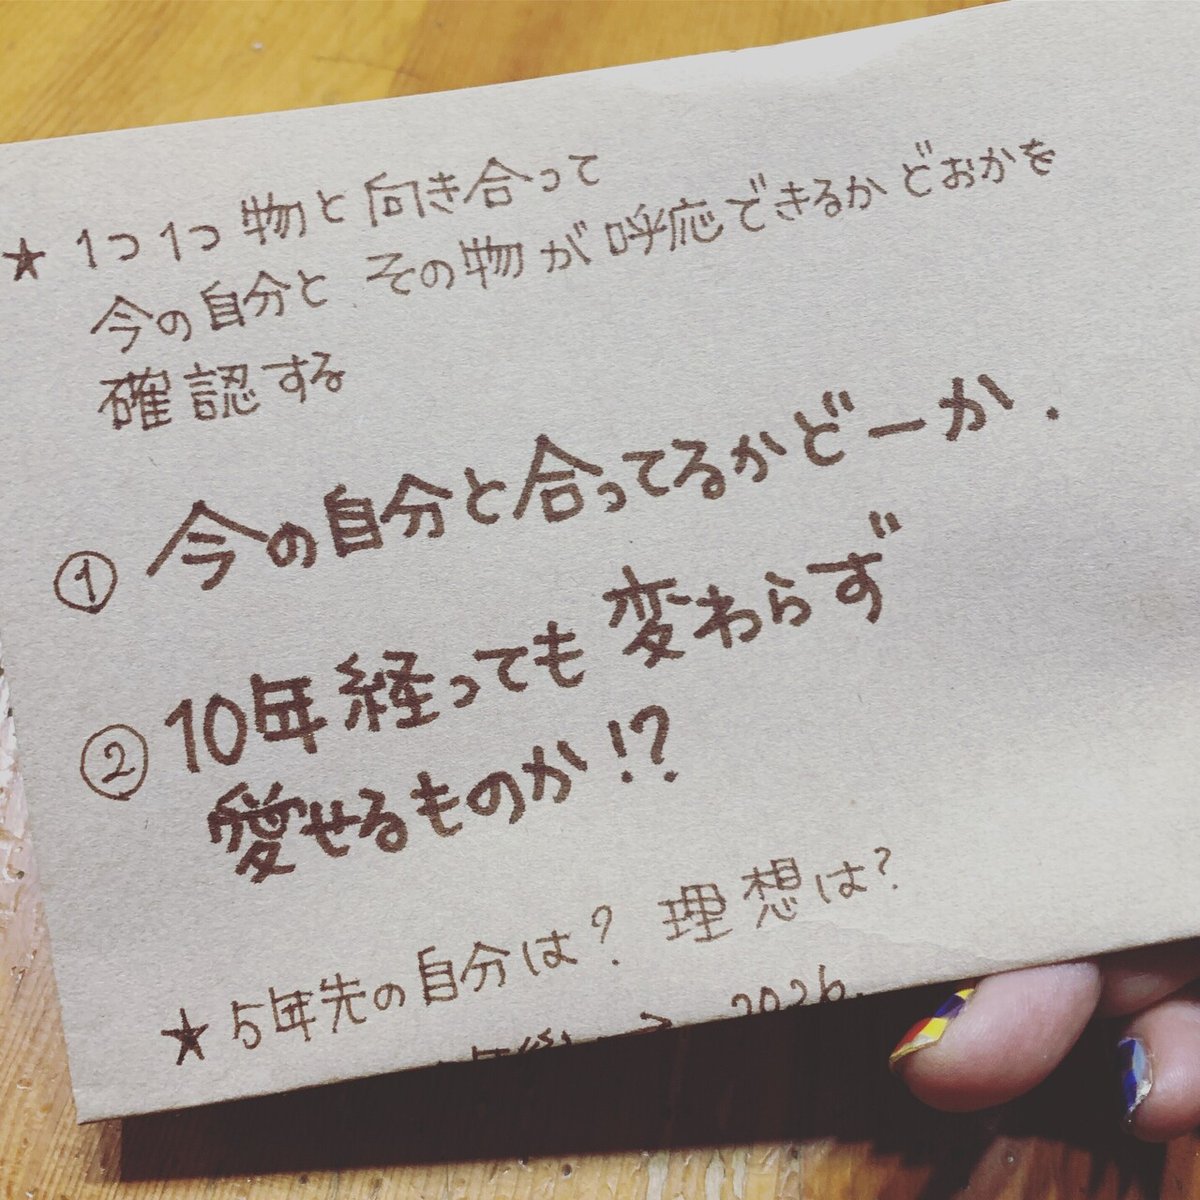 ★ 1つ1つ 物と向き合って
今の自分と その物が呼応できるかどおかを
確認する
① 今の自分と合ってるかどーか.
② 10年経っても変わらず
愛せるものか!?
★ 5年先の自分は? 理想は?
年後 → 2026.